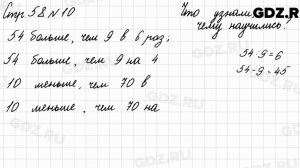 Стр 58 № 10
Что узнали,
чему научились?
GDZ.RU
54 больше, чем 9 в 6 раз;
54 больше, чем 9 на 4
10 меньше, чем 70 в
10 меньше, чем 70 на
54:9=6
54-9=45